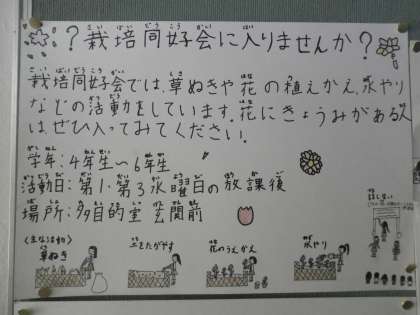 ?栽培同好会に入りませんか?
栽培同好会では、草ぬきや花の植えかえ、水やり
などの活動をしています。花にきょうみがある人
は、ぜひ入ってみてください。
学年:4年生〜6年生
活動日:第1・第3水曜日の放課後
場所:多目的室 玄関前
〈主な活動〉
草ぬき
土をたがやす
花のうえかえ
水やり